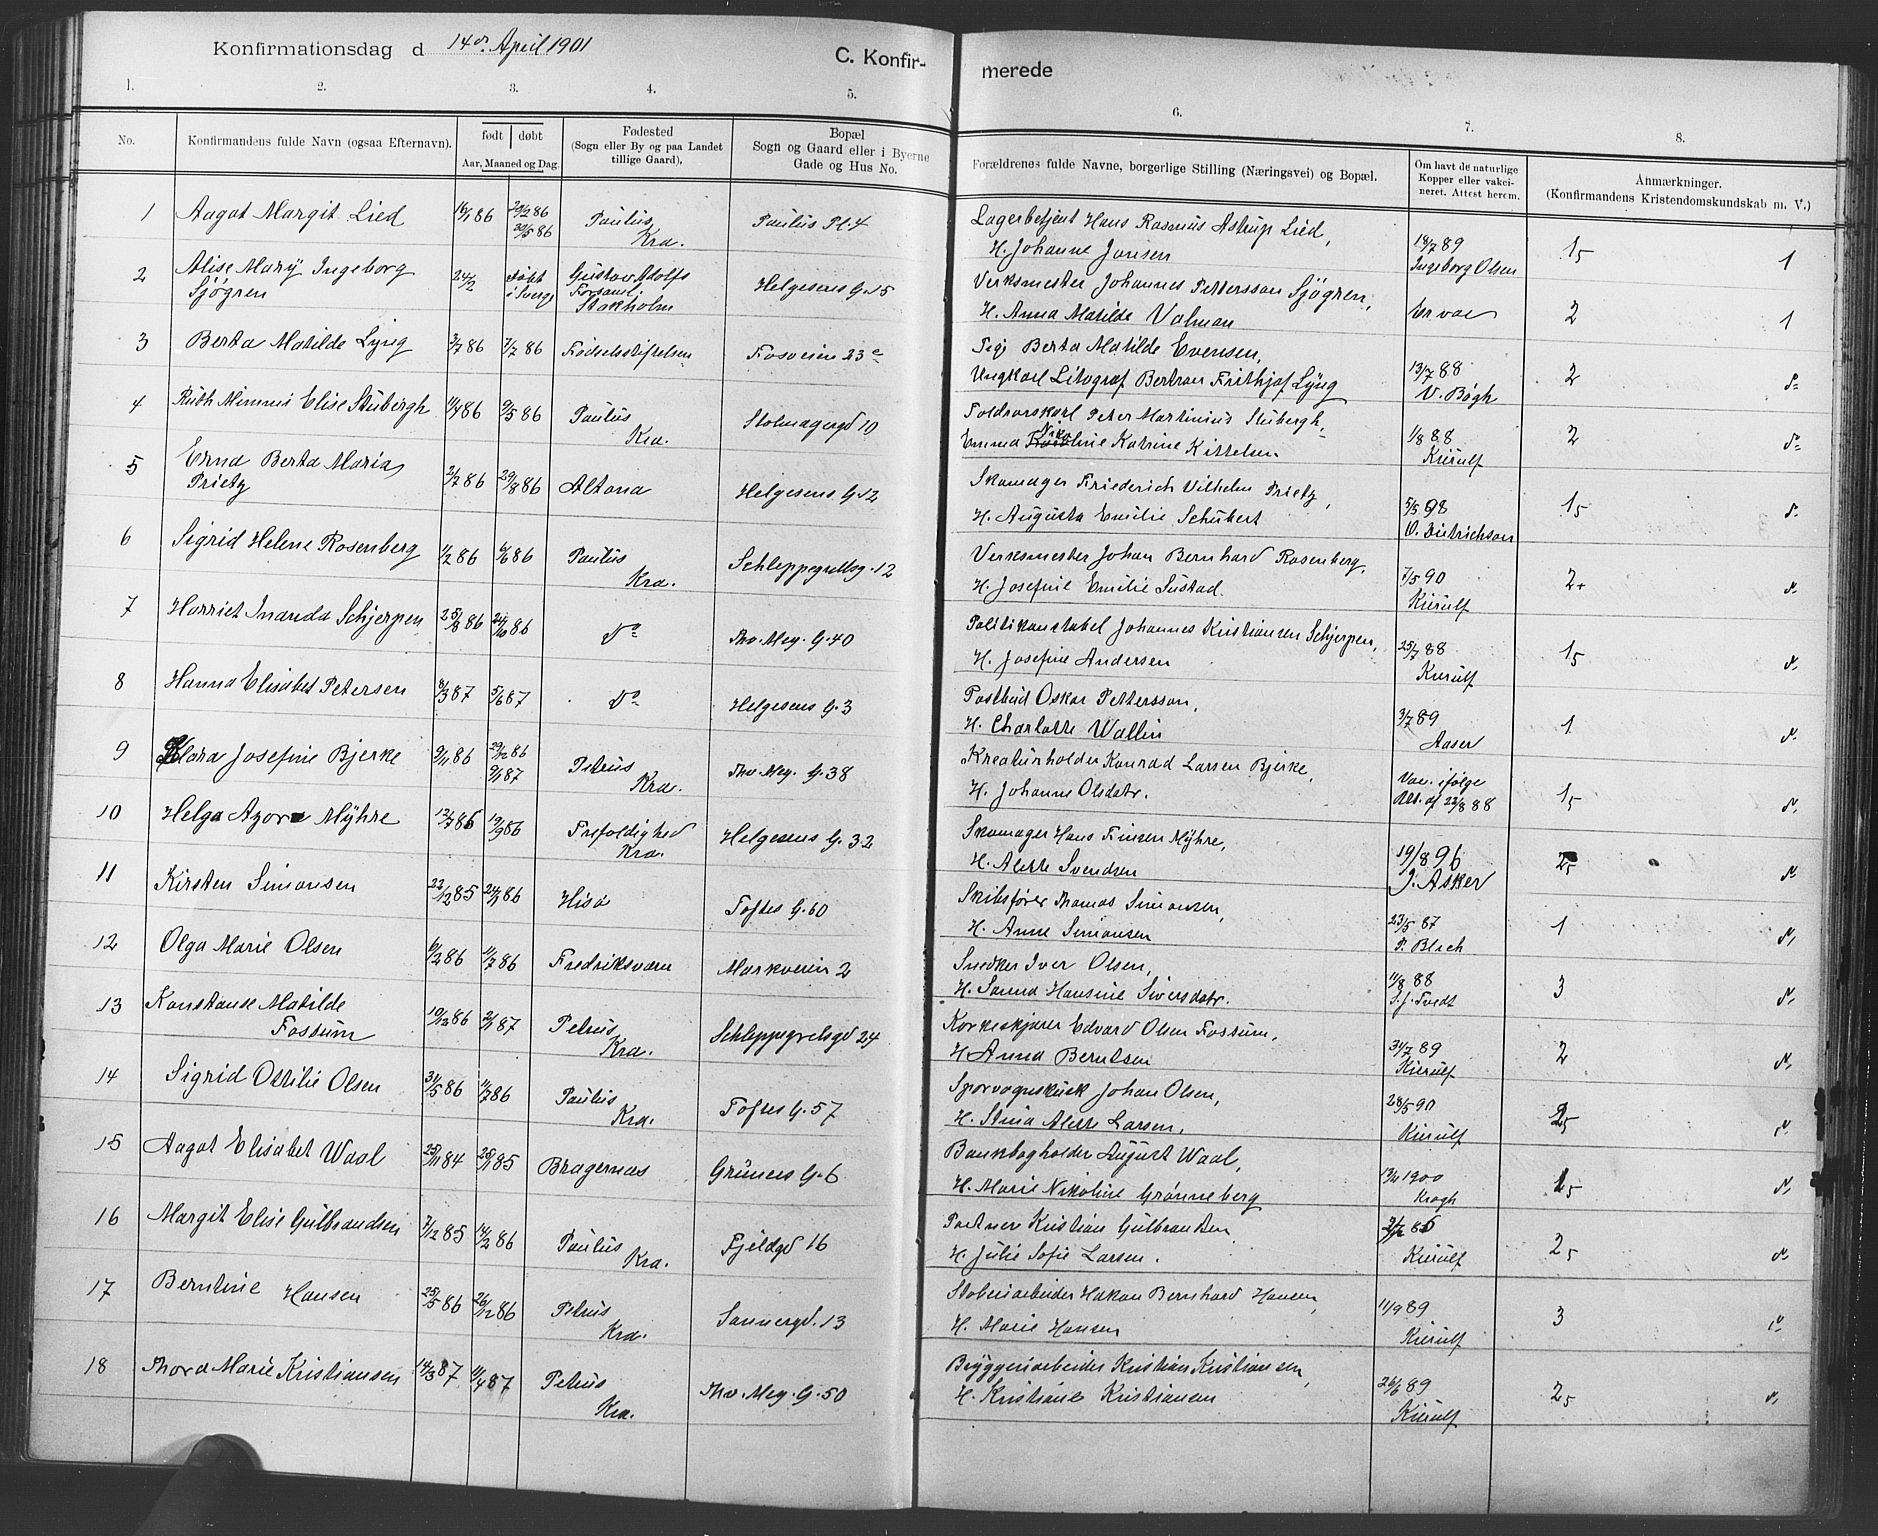 Konfirmationsdag d 14de April 1901
C. Konfir-
merede
1. 2. 3. 4. 5. 6. 7. 8.
No. Konfirmandens fulde Navn (ogsaa Efternavn). født døbt Aar, Maaned og Dag. Fødested (Sogn eller By og paa Landet tillige Gaard). Bopæl Sogn og Gaard eller i Byerne Gade og Hus No. Forældrenes fulde Navne, borgerlige Stilling (Næringsvei) og Bopæl. Om havt de naturlige Kopper eller vakcineret. Attest herom. Anmærkninger. (Konfirmandens Kristendomskundskab m. V.)
1 Aagot Margit Lied 86 86 Paulus Pl. 4 Lagerbetjent Hans Rasmus Astrup Lied,
30/5 86 Paulus Kra. H. Johanne Jansen 18/7 89 Ingeborg Olsen 15 1
2 Alise Mary Ingeborg 24/2 døbt i Sverge Gustav Adolfs Helgesens G. 15 Verksmester Johannes Pettersson Sjögren,
Sjögren Forsaml. Stokholm H. Anna Matilde Valman 2 1
3 Berta Matilde Lyng 3/7 86 7/7 86 Fødselsstiftelsen Fosveien 23 c Pige Berta Matilde Evensen,
Ungkarl Litograf Bertran Frithjof Lyng 13/7 88 V. Bøgh 2 do
4 Ruth Mimmis Elise Stubergh 11/4 86 9/5 86 Paulus Stolmagergd 10 Toldvarskarl Peter Martinius Stubergh
Kra. Emma Nikoline Katrine Kittelsen 1/8 88 Kierulf 2 do
5 Erna Berta Maria 2/2 86 29/8 86 Altona Helgesens G. 12 Skomager Friederich Vilhelm Prietz,
Prietz H. Augusta Emilie Schubert 5/5 98 O. Dietrichson 15 do
6 Sigrid Helene Rosenberg 1/2 86 6/6 86 Paulus Schleppegrellsg. 12 Verksmester Johan Bernhard Rosenberg,
Kra. H. Josefine Emilie Sustad. 7/5 90 Kierulf 2+ do
7 Harriet Inanda Schjerpen 25/8 86 24/10 86 do Thv. Mey. G. 40 Politikonstabel Johannes Kristiansen Schjerpen,
H. Josefine Andersen 25/7 88 Kierulf 15 do
8 Hanna Elisabet Petersen 8/3 87 5/6 87 do Helgesens G. 3 Postbud Oskar Pettersson,
H. Charlotte Wallin 3/7 89 Aaser 1 do
9 Klara Josefine Bjerke 9/11 86 29/12 86 Petrus Thv. Mey. G. 38 Kreaturholder Konrad Larsen Bjerke,
87 Kra. H. Johanne Olsdatr. Vac. ifølge Att. af 22/8 88 15 do
10 Helga Azora Myhre 12/7 86 19/9 86 Trefoldighed Helgesens G. 32 Skomager Hans Finsen Myhre,
Kra. H. Alette Svendsen 19/8 96 J. Asker 25 do
11 Kirsten Simonsen 22/12 85 86 Hisø Toftes G. 60 Skibsfører Thomas Simonsen,
H. Anne Simonsen 23/5 87 P. Blich 1 do
12 Olga Marie Olsen 6/2 86 11/7 86 Fredriksværn Markveien 2 Snedker Iver Olsen,
H. Sanna Hansine Siversdatr. 11/8 88 S. J. Tvedt 3 do
13 Konstanse Matilde 19/12 86 2/1 87 Petrus Schleppegrelsgd 24 Korkeskjærer Edvard Olsen Fossum,
Fossum Kra. H. Anna Berntsen 31/7 89 Kierulf 2 do
14 Sigrid Ottilie Olsen 31/5 86 11/7 86 Paulus Toftes G. 57 Sporvognskusk Johan Olsen,
Kra. H. Stina Alette Larsen. 28/5 90 Kierulf 25 do
15 Aagot Elisabet Waal 25/11 84 25/1 85 Bragernæs Grüners G. 6 Bankbogholder August Waal,
H. Marie Nikoline Grønneberg 1900 Krogh 15 do
16 Margit Elise Gulbrandsen 7/12 85 14/2 86 Paulus Fjeldgd 16 Portner Kristian Gulbrandsen
Kra. H. Julie Sofie Larsen. Kierulf 25 do
17 Berntine Hansen 25/5 86 26/12 86 Petrus Sannergd. 13 Støberiarbeider Hakon Bernhard Hansen,
Kra. H. Marie Hansen 11/9 89 Kierulf 3 do
18 Thora Marie Kristiansen 14/3 87 11/4 87 Petrus Thv. Mey. G. 50 Bryggeriarbeider Kristian Kristiansen,
Kra. H. Kristiane Kristiansen 26/6 89 Kierulf 25 do